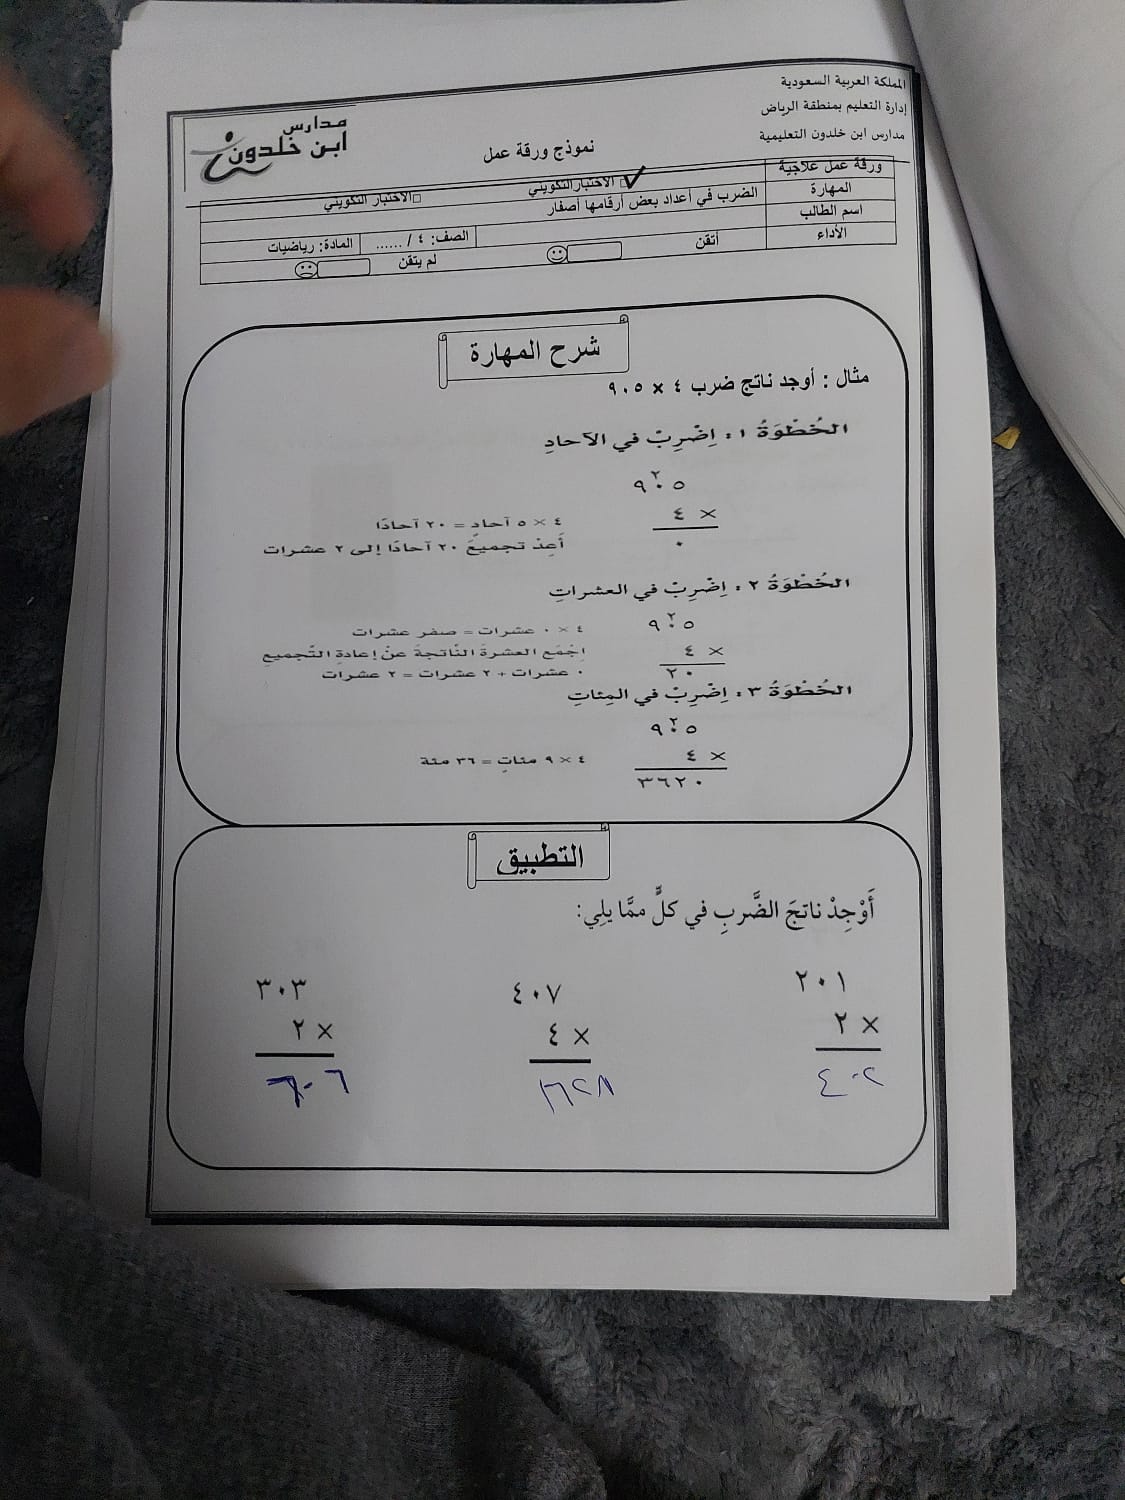 المملكة العربية السعودية
إدارة التعليم بمنطقة الرياض
مدارس ابن خلدون التعليمية
مدارس
ابن خلدون
نموذج ورقة عمل
ورقة عمل علاجية □ الاختبار التكويني □ الاختبار التكويني
المهارة الضرب في أعداد بعض أرقامها أصفار
اسم الطالب الصف: ٤ / ...... المادة: رياضيات
الأداء أتقن لم يتقن
شرح المهارة
مثال : أوجد ناتج ضرب ٤ × ٩٠٥
الخُطْوَةُ ١ : اِضْرِبْ في الآحادِ
٢
٩٠٥
× ٤
٤ × ٥ آحادٍ = ٢٠ آحادًا
٠
أَعِدْ تجميعَ ٢٠ آحادًا إلى ٢ عشرات
الخُطْوَةُ ٢ : اِضْرِبْ في العشراتِ
٢
٩٠٥
٤ × ٠ عشرات = صفر عشرات
× ٤
اِجْمَعِ العشرةَ النّاتجةَ عنْ إعادةِ التّجميعِ
٢٠
٠ عشرات + ٢ عشرات = ٢ عشرات
الخُطْوَةُ ٣ : اِضْرِبْ في المِئاتِ
٢
٩٠٥
× ٤
٤ × ٩ مئاتٍ = ٣٦ مئة
٣٦٢٠
التطبيق
أَوْجِدْ ناتجَ الضَّربِ في كلٍّ ممَّا يلِي:
٢٠١ ٤٠٧ ٣٠٣
× ٢ × ٤ × ٢
٤٠٢ ١٦٢٨ ٦٠٦